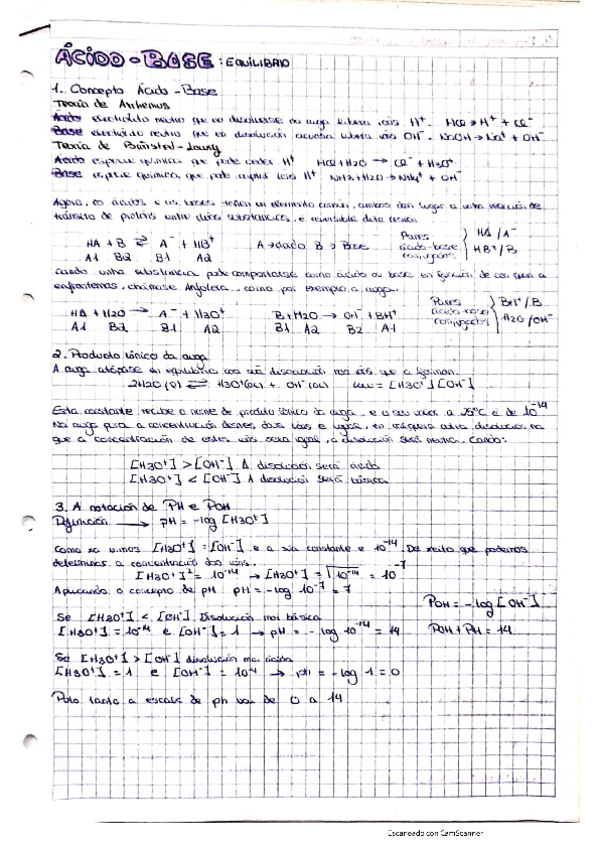 ÁCIDO-BASE: EQUILIBRIO
1. Concepto Ácido-Base
Teoría de Arrhenius
Ácido electrolito neutro que ao disolverse na auga libera ións H⁺. HCl → H⁺ + Cl⁻
Base electrolito neutro que en disolución acuosa libera ións OH⁻. NaOH → Na⁺ + OH⁻
Teoría de Brönsted-Lowry
Ácido especie química que pode ceder H⁺ HCl + H2O → Cl⁻ + H3O⁺
Base especie química, que pode captar ións H⁺ NH3 + H2O → NH4⁺ + OH⁻
Agora, os ácidos e as bases teñen un elemento común, ambos dan lugar a unha reacción de
tránsito de protóns entre dúas substancias, e reversible
HA + B ⇄ A⁻ + HB⁺ A → ácido B → Base Pares ácido-base conjugados } HA / A⁻ HB⁺/B
A1 B2 B1 A2
cando unha substancia pode comportarse como ácido ou base en función de con quen a
enfrontemos, chámase Anfótera, como por exemplo a auga.
HA + H2O → A⁻ + H3O⁺ B + H2O → OH⁻ + BH⁺ Pares ácido-base conjugados } BH⁺/B H2O/OH⁻
A1 B2 B1 A2 B1 A2 B2 A1
2. Producto iónico da auga
A auga atópase en equilibrio coa súa disociación nos ións que a forman.
2H2O (l) ⇄ H3O⁺(ac) + OH⁻(ac) Kw = [H3O⁺][OH⁻]
Esta constante recibe o nome de produto iónico da auga, e o seu valor a 25ºC é de 10⁻¹⁴
Na auga pura a concentración destes dous ións é igual, en calquera outra disolución na
que a concentración de estes ións sexa igual, a disolución será neutra. Cando:
[H3O⁺] > [OH⁻] A disolución será ácida
[H3O⁺] < [OH⁻] A disolución será básica
3. A notación de PH e POH
Definición → pH = -log [H3O⁺]
Como xa vimos [H3O⁺] = [OH⁻] e a súa constante é 10⁻¹⁴. De xeito que podemos
determinar a concentración dos ións.
[H3O⁺]² = 10⁻¹⁴ → [H3O⁺] = √10⁻¹⁴ = 10⁻⁷
Aplicando o concepto de pH pH = -log 10⁻⁷ = 7
POH = -log [OH⁻]
Se [H3O⁺] < [OH⁻]. Disolución moi básica
[H3O⁺] = 10⁻¹⁴ e [OH⁻] = 1 → pH = -log 10⁻¹⁴ = 14 POH + PH = 14
Se [H3O⁺] > [OH⁻] disolución moi ácida
[H3O⁺] = 1 e [OH⁻] = 10⁻¹⁴ → pH = -log 1 = 0
Polo tanto a escala de ph vai de 0 a 14
Escaneado con CamScanner